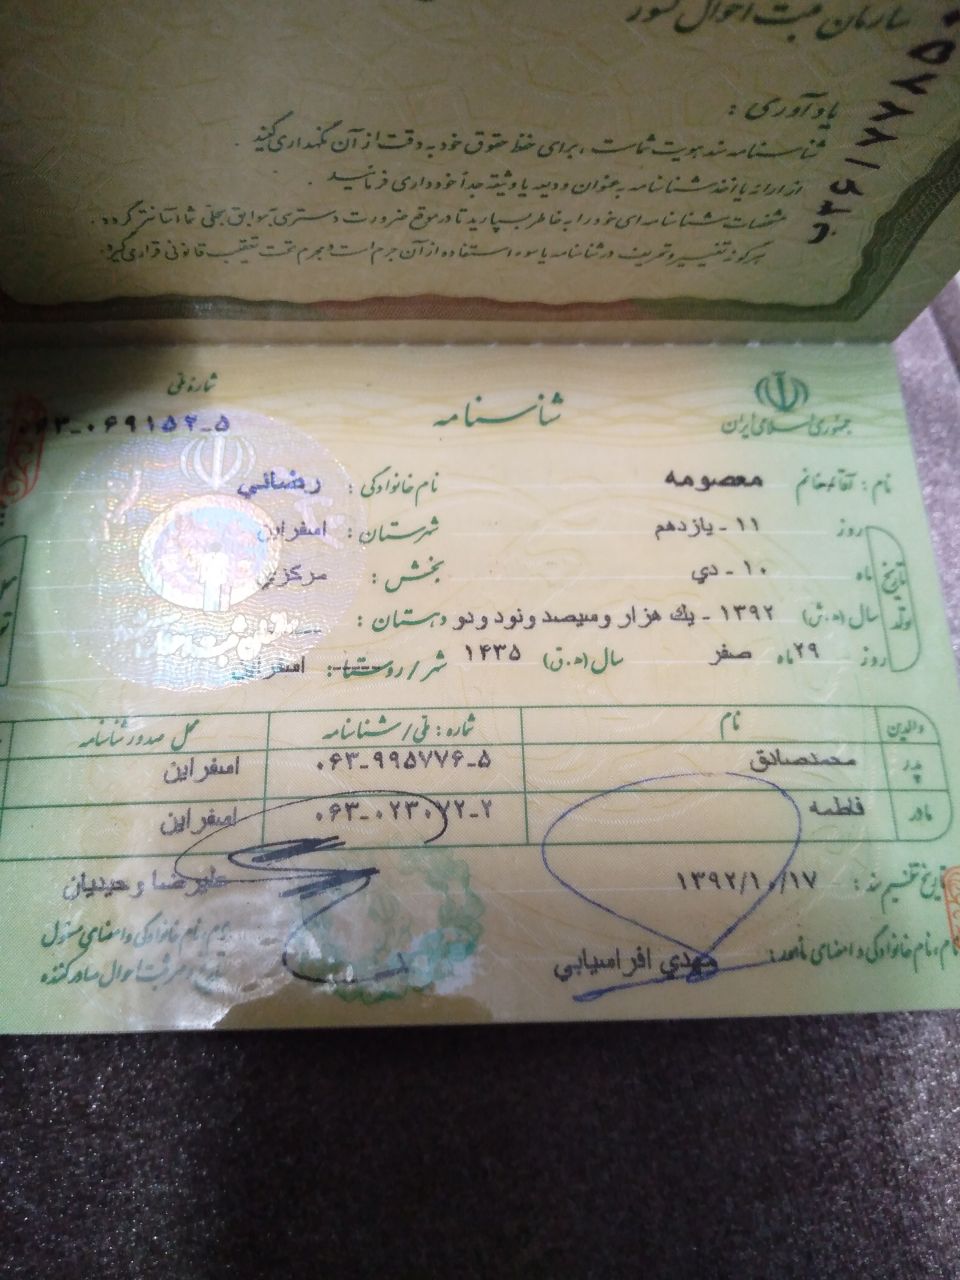 سازمان ثبت احوال کشور
یادآوری :
شناسنامه سند هویت شماست ، برای حفظ حقوق خود به دقت از آن نگهداری کنید .
از ارائه یا اخذ شناسنامه به عنوان ودیعه یا وثیقه جداً خودداری فرمائید .
مشخصات شناسنامه ای خود را به خاطر بسپارید تا در موقع ضرورت دسترسی به سوابق سجلی شما آسانتر گردد .
هرگونه تغییر و تحریف در شناسنامه یا سوء استفاده از آن جرم است و مجرم تحت تعقیب قانونی قرار می گیرد .
جمهوری اسلامی ایران
شناسنامه
شماره ملی
۰۶۳-۰۶۹۱۵۲-۵
نام : آقا/خانم معصومه نام خانوادگی : رضائي
تاریخ تولد
روز ۱۱ - یازدهم شهرستان : اسفراین
ماه ۱۰ - دي بخش : مرکزي
سال (ه.ش) ۱۳۹۲ - یك هزار و سیصد و نود و دو دهستان :
روز ۲۹ ماه صفر سال (ه.ق) ۱۴۳۵ شهر/روستا : اسفراین
والدین نام شماره : ملی/شناسنامه محل صدور شناسنامه
پدر محمدصادق ۰۶۳-۹۹۵۷۷۶-۵ اسفراین
مادر فاطمه اسفراین
تاریخ تنظیم سند : ۱۳۹۲/۱۰/۱۷ علیرضا وحیدیان
نام، نام خانوادگی و امضای مأمور : مهدي افراسیابي
نام، نام خانوادگی و امضای مسئول
ثبت احوال صادرکننده